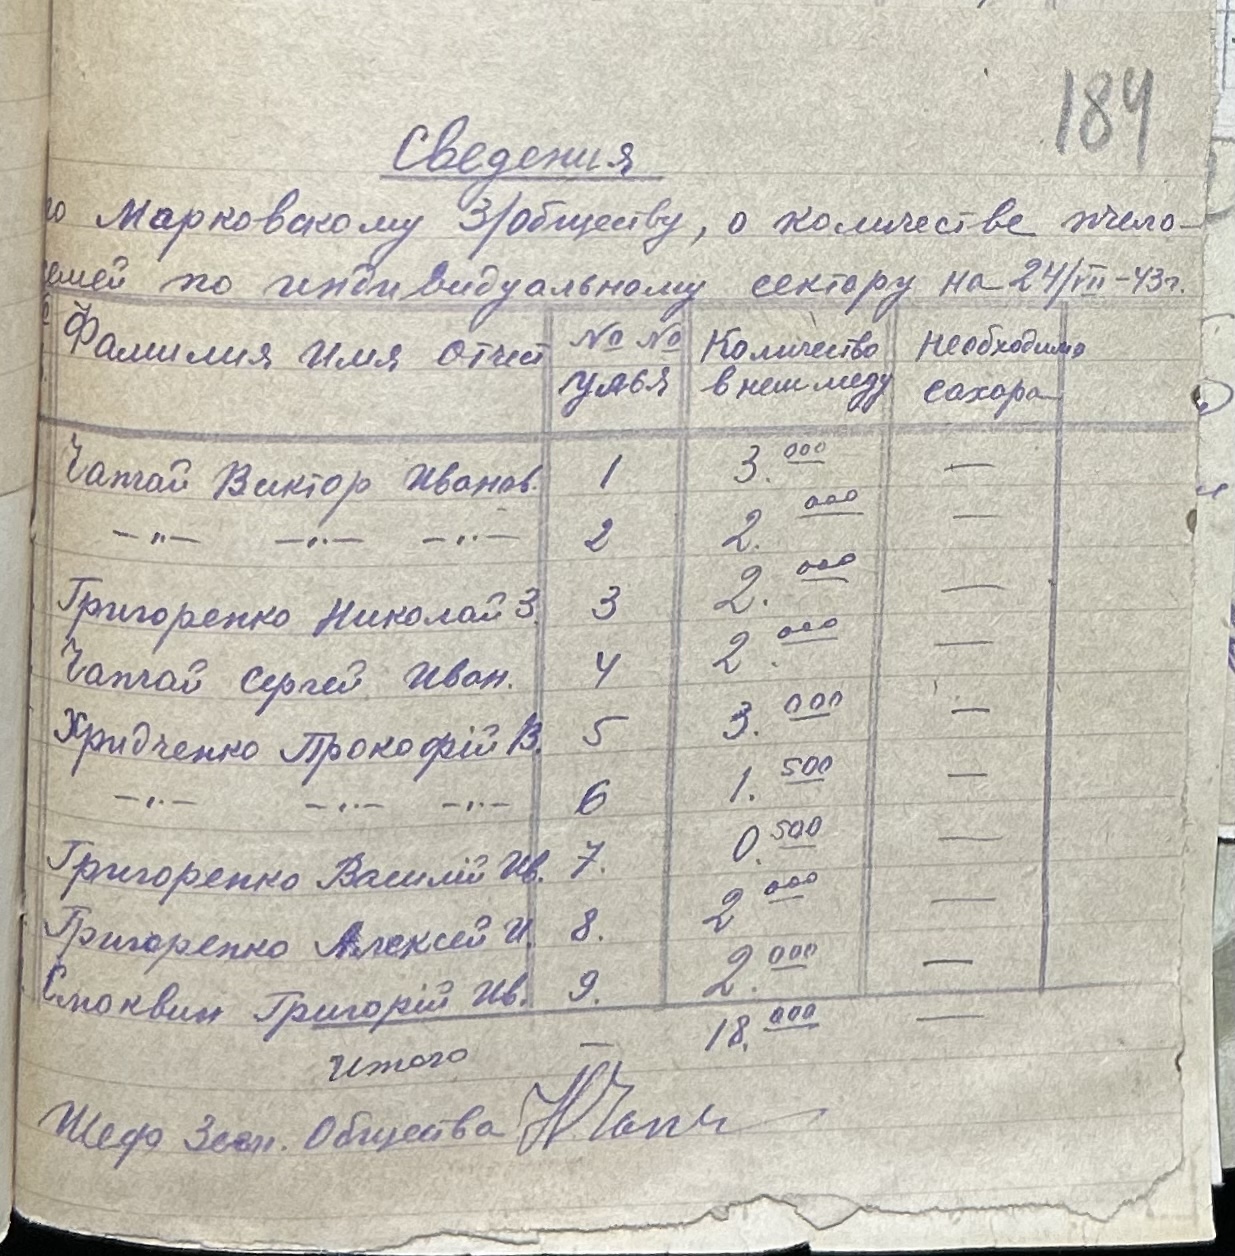 184
Сведения
по Марковскому З/обществу, о количестве пчело-
семей по индивидуальному сектору на 24/VII-43г.
Фамилия Имя Отчест №№ улья Количество в нем меду Необходимо сахара
Чапчай Виктор Иванов. 1 3.000 —
—"— —"— —"— 2 2.000 —
Григоренко Николай З. 3 2.000 —
Чапчай Сергей Иван. 4 2.000 —
Хридченко Прокофій В. 5 3.000 —
—"— —"— —"— 6 1.500 —
Григоренко Василій Ив. 7. 0.500 —
Григоренко Алексей И. 8. 2.000 —
Смоквин Григорій Ив. 9. 2.000 —
Итого — 18.000 —
Шеф Зем. Общества